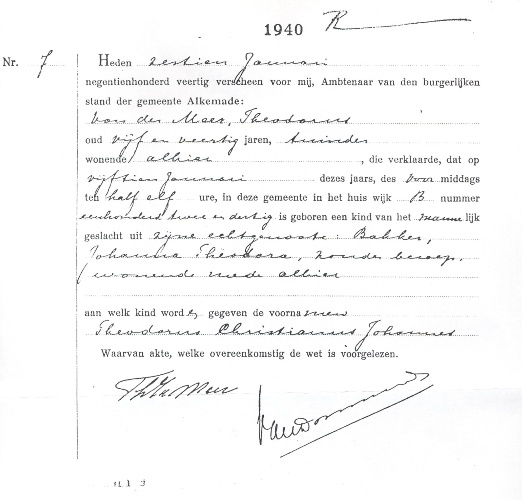 1940 R
Nr. 7 Heden zestien Januari
negentienhonderd veertig verscheen voor mij, Ambtenaar van den burgerlijken
stand der gemeente Alkemade:
Van der Meer, Theodorus
oud vijf en veertig jaren, tuinder
wonende alhier , die verklaarde, dat op
vijftien Januari dezes jaars, des voor middags
ten half elf ure, in deze gemeente in het huis wijk B nummer
eenhonderd twee en dertig is geboren een kind van het manne lijk
geslacht uit zijne echtgenoote: Bakker,
Johanna Theodora, zonder beroep,
wonende mede alhier
aan welk kind word en gegeven de voorna men
Theodorus Christianus Johannes
Waarvan akte, welke overeenkomstig de wet is voorgelezen.
Th vd Meer